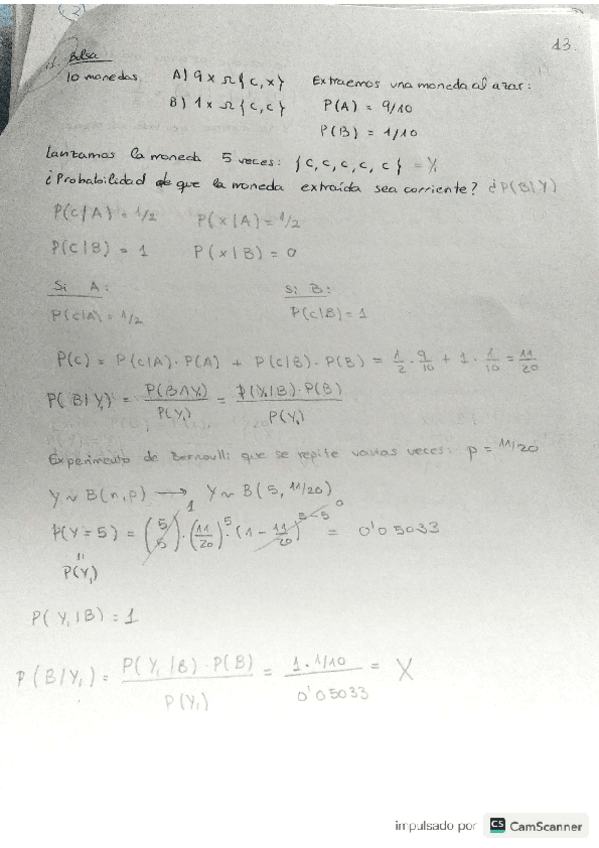 2
13.
Bolsa
10 monedas. A) 9 x Ω{c,x} Extraemos una moneda al azar:
B) 1 x Ω{c,c} P(A) = 9/10
P(B) = 1/10
Lanzamos la moneda 5 veces: {c, c, c, c, c} = Y₁
¿Probabilidad de que la moneda extraída sea corriente? ¿P(B|Y)
P(c|A) = 1/2 P(x|A) = 1/2
P(c|B) = 1 P(x|B) = 0
Si A: Si B:
P(c|A) = 1/2 P(c|B) = 1
P(c) = P(c|A)·P(A) + P(c|B)·P(B) = 1/2 · 9/10 + 1 · 1/10 = 11/20
P(B|Y₁) = P(B∩Y₁)/P(Y₁) = P(Y₁|B)·P(B)/P(Y₁)
Experimento de Bernoulli que se repite varias veces: p = 11/20
Y ~ B(n,p) → Y ~ B(5, 11/20)
P(Y=5) = (5 5)¹ · (11/20)⁵ · (1 - 11/20)⁵⁻⁵ ⁰ = 0'05033
"
P(Y₁)
P(Y₁|B) = 1
P(B|Y₁) = P(Y₁|B)·P(B)/P(Y₁) = 1·1/10 / 0'05033 = X
impulsado por CS CamScanner